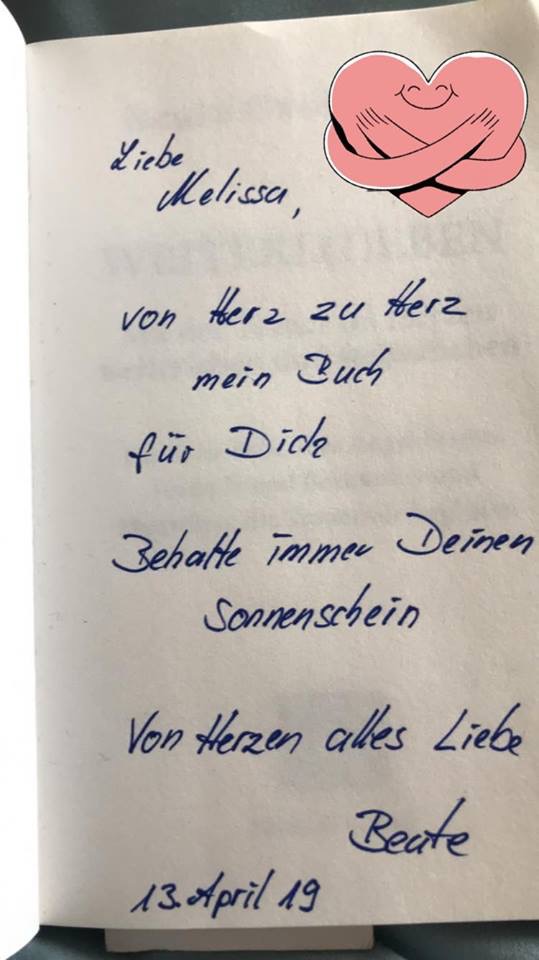 Liebe
Melissa,
von Herz zu Herz
mein Buch
für Dich
Behalte immer Deinen
Sonnenschein
Von Herzen alles Liebe
Beate
13. April 19